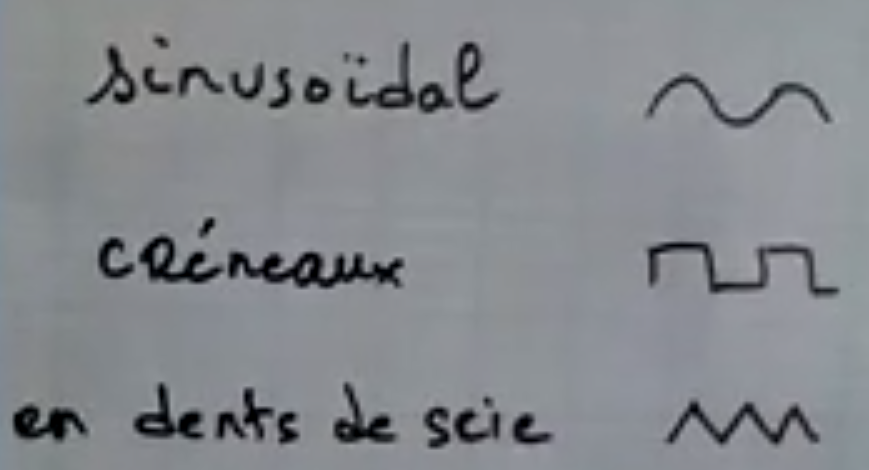 sinusoïdal
créneaux
en dents de scie